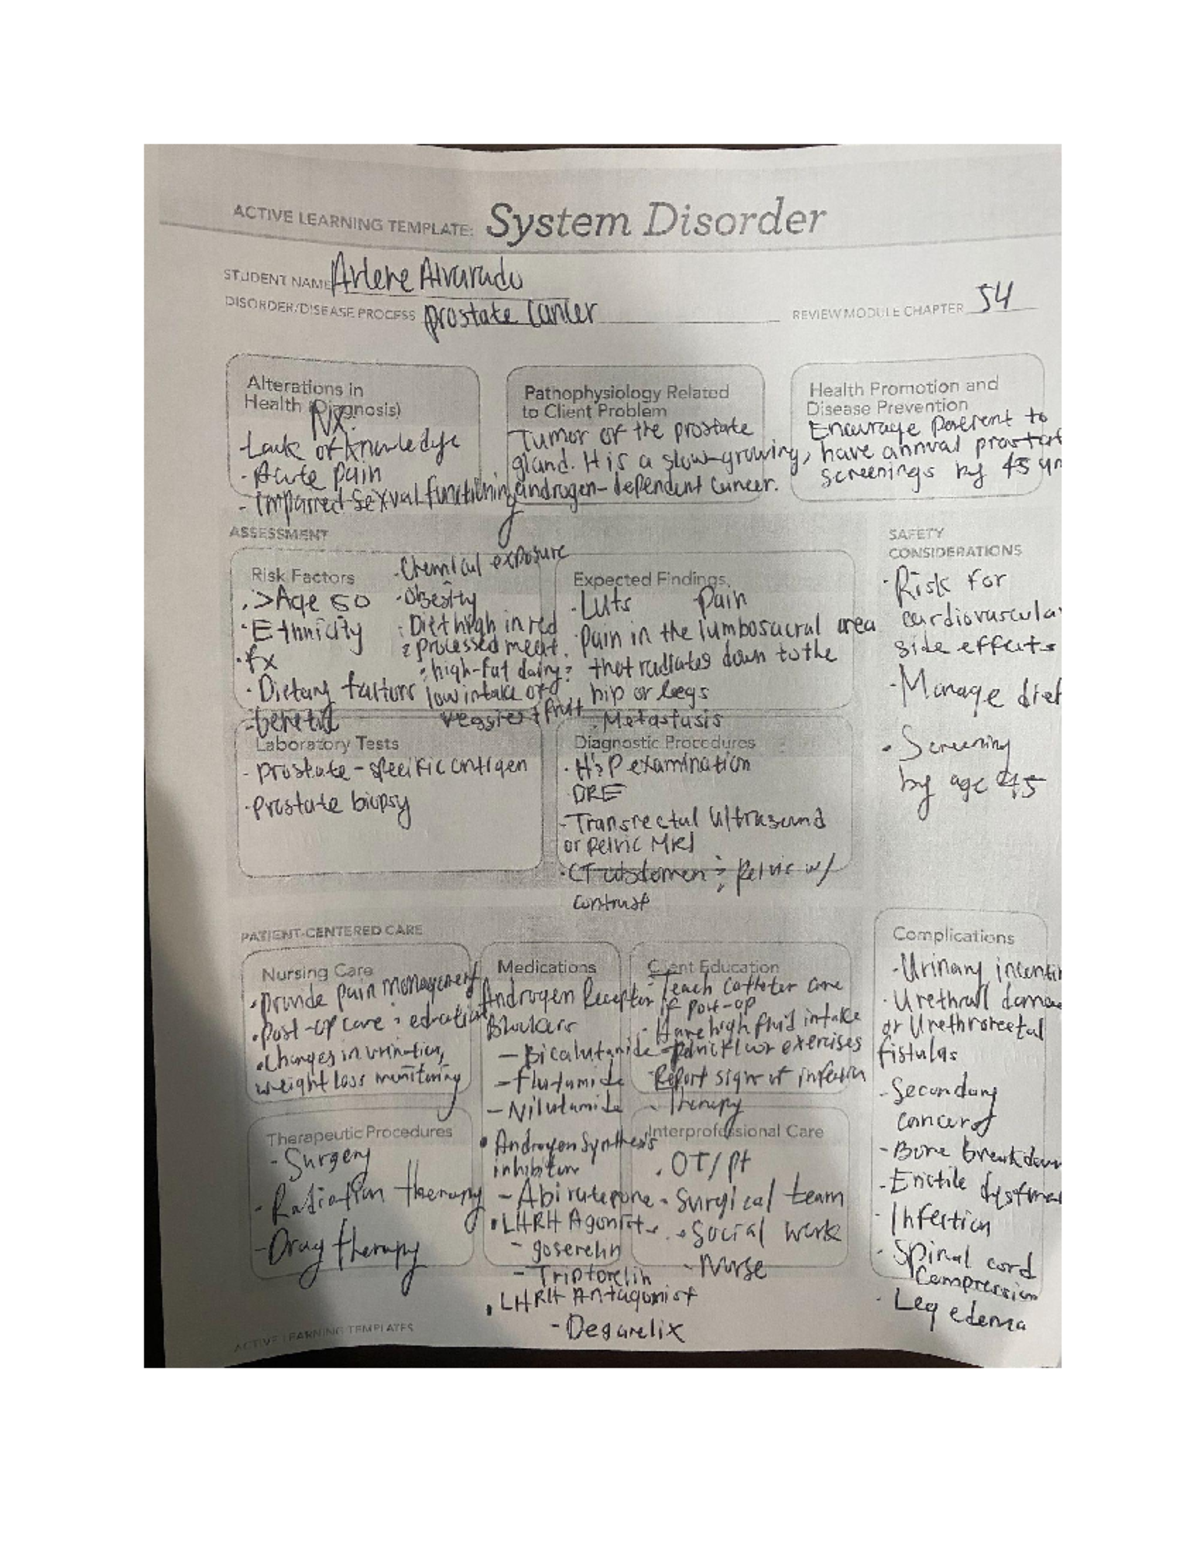 ACTIVE LEARNING TEMPLATE: System Disorder
STUDENT NAME Arlene Alvarado
DISORDER/DISEASE PROCESS prostate cancer
REVIEW MODULE CHAPTER 54
Alterations in
Health (Diagnosis)
Nx:
- Lack of knowledge
- Acute pain
- Impaired sexual functioning
Pathophysiology Related
to Client Problem
Tumor of the prostate
gland. It is a slow-growing,
androgen-dependent cancer.
Health Promotion and
Disease Prevention
Encourage patient to
have annual prostat
screenings by 45
ASSESSMENT
Risk Factors
· >Age 50
· Ethnicity
· fx
· Dietary factors
- genetic
- Chemical exposure
· Obesity
· Diet high in red
& processed meat,
· high-fat dairy &
low intake of
veggies + fruit
Expected Findings
- LUTS Pain
· Pain in the lumbosacral area
that radiates down to the
hip or legs
· Metastasis
SAFETY
CONSIDERATIONS
· Risk for
cardiovascula
side effects
- Manage diet
· Screening
by age 45
Laboratory Tests
- prostate-specific antigen
· Prostate biopsy
Diagnostic Procedures
· H&P examination
DRE
- Transrectal Ultrasound
or pelvic MRI
· CT abdomen & pelvis w/
contrast
PATIENT-CENTERED CARE
Nursing Care
· Provide pain management
· Post-op care & education
· Changes in urination,
weight loss monitoring
Medications
Androgen Receptor
Blockers
- Bicalutamide
- Flutamide
- Nilutamide
· Androgen Synthesis
inhibitor
- Abiraterone
· LHRH Agonist
- goserelin
- Triptorelin
· LHRH Antagonist
- Degarelix
Client Education
- Teach catheter care
if post-op
- Have high fluid intake
- pelvic floor exercises
- Report signs of infection
- Therapy
Therapeutic Procedures
- Surgery
- Radiation therapy
- Drug therapy
Interprofessional Care
· OT/pt
- Surgical team
· Social work
- Nurse
Complications
- Urinary incontin
· Urethral dama
or Urethrorectal
fistulas
- Secondary
cancer
- Bone breakdown
- Erectile dysfunc
· Infection
· Spinal cord
Compression
- Leg edema
ACTIVE LEARNING TEMPLATES